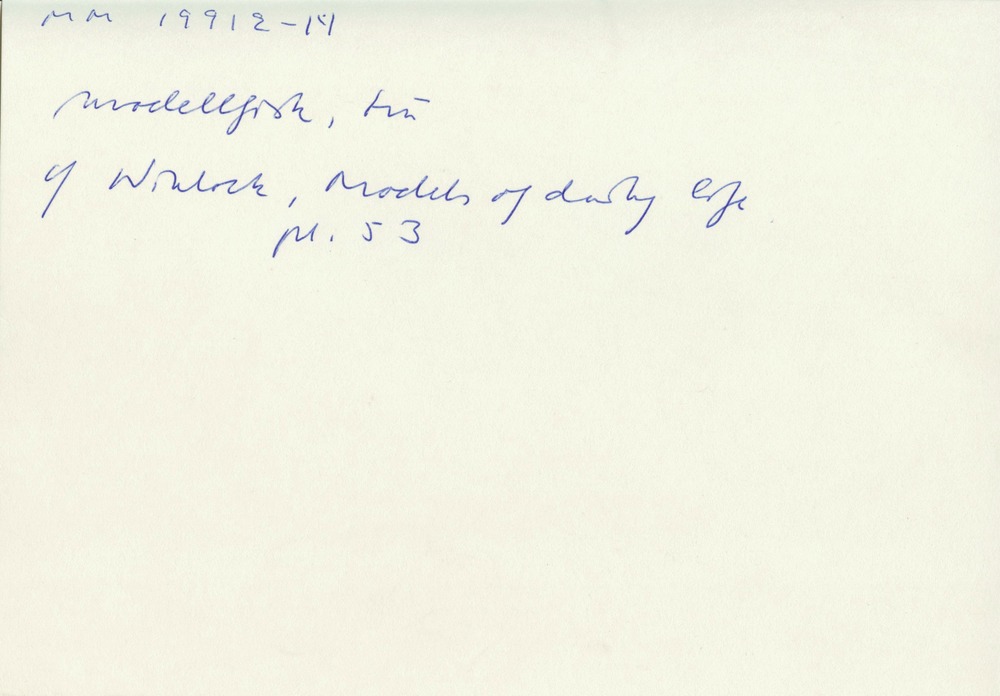 MM 19912-14
modellfisk, trä
cf Winlock, Models of daily life
pl. 53